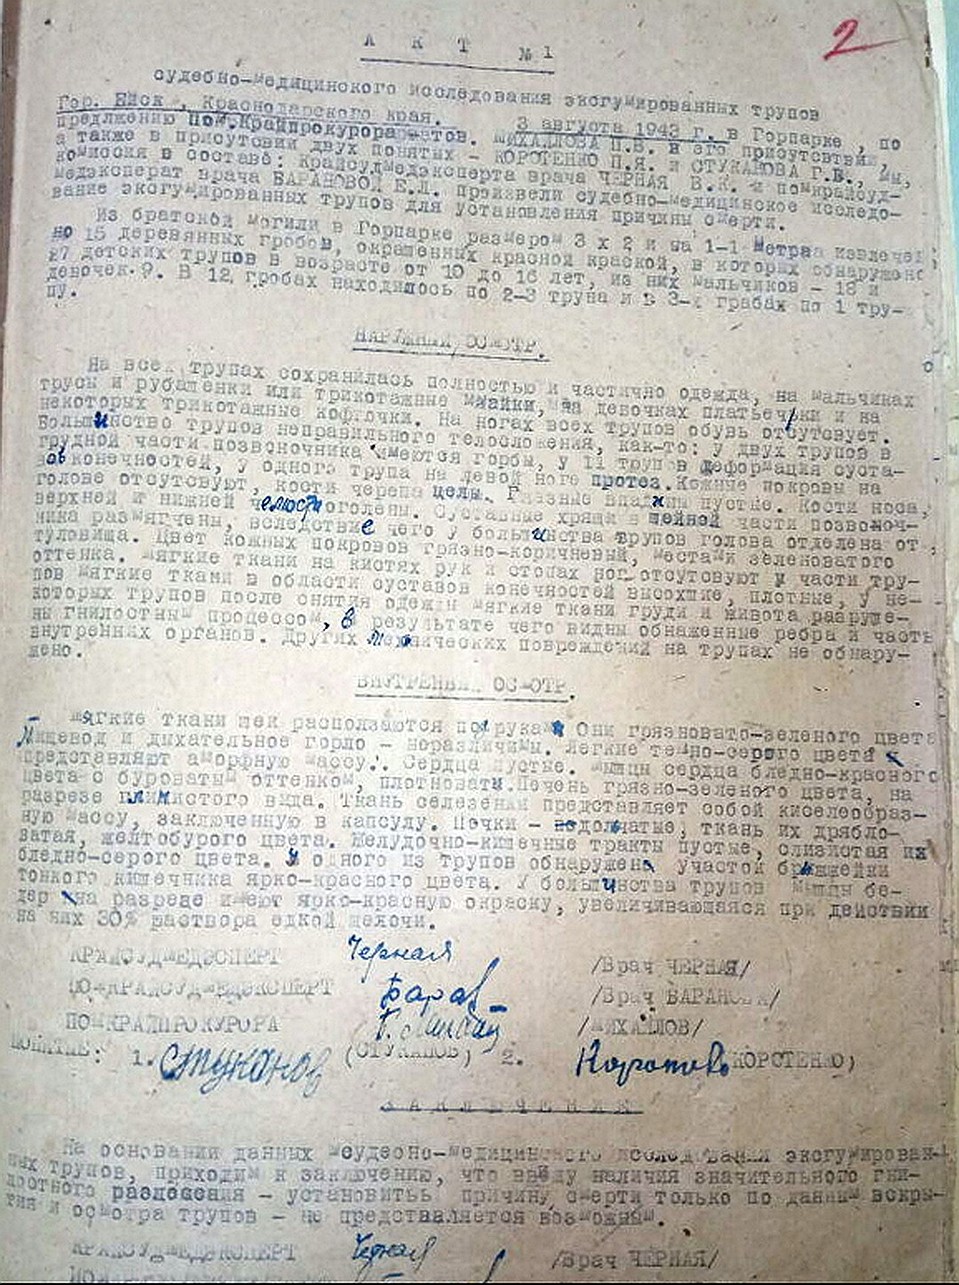 2
А К Т №1
судебно-медицинского исследования эксгумированных трупов
Гор. Ейск, Краснодарского края. 3 августа 1943 г. в Горпарке, по
предлжению Пом.Крайпрокурора МИХАЙЛОВА П.В. и его присутствии,
а также в присутсвии двух понятых - КОРОТЕНКО П.Я. и СТУКАНОВА Г.В., мы,
комиссия в составе: крайсудмедэксперта врача ЧЕРНАЯ В.К. и помкрайсуд-
медэксперат врача БАРАНОВОЙ Е.Л. произвели судебно-медицинское исследо-
вание эксгумированных трупов для установления причины смерти.
Из братской могили в Горпарке размером 3 х 2 и на 1-1 метра извлече
но 15 деревянных гробов, окрашенных красной краской, в которых обнаружено
27 детских трупов в возрасте от 10 до 16 лет, из них мальчиков - 18 и
девочек-9. В 12 гробах находилось по 2-3 трупа и в 3-х грабах по 1 тру-
пу.
НАРУЖНЫЙ ОСМОТР.
На всех трупах сохранилась полностью и частично одежда, на мальчиках
трусы и рубашенки или трикотажные майки, на девочках платьечки и на
некоторых трикотажные кофточки. На ногах всех трупов обувь отсутсвует.
Большинство трупов неправильного телосложения, как-то: у двух трупов в
грудной части позвоночника имеются горбы, у 11 трупов деформация суста-
вов конечностей, у одного трупа на левой ноге протез. Кожные покровы на
голове отсутсвуют, кости черепа целы. Глазные впадины пустые. Кости носа,
верхней и нижней челюсти оголены. Суставные хрящи в шейной части позвоноч-
ника размягчены, вследствие чего у большинства трупов голова отделена от
туловища. Цвет кожных покровов грязно-коричневый, местами зеленоватого
оттенка. Мягкие ткани на кистях рук и стопах ног отсутсвуют у части тру-
пов мягкие ткани в области суставов конечностей высохшие, плотные, у не-
которых трупов после снятия одежды мягкие ткани груди и живота разруше-
ны гнилостным процессом, в результате чего видны обнаженные ребра и часть
внутренних органов. Других механических повреждений на трупах не обнару-
жено.
ВНУТРЕННИЙ ОСМОТР.
Мягкие ткани шеи расползаются под руками Они грязновато-зеленого цвета
Пищевод и дыхательное горло - неразличимы. Легкие темно-серого цвета
представляют аморфную массу. Сердца пустые. Мышцы сердца бледно-красного
цвета с буроватым оттенком, плотноваты. Печень грязно-зеленого цвета, на
разрезе глинистого вида. Ткань селезенки представляет собой киселеобраз-
ную массу, заключенную в капсулу. Почки - дольчатые, ткань их дрябло-
ватая, желтобурого цвета. Желудочно-кишечные тракты пустые, слизистая их
бледно-серого цвета. У одного из трупов обнаружен участок брыжжейки
тонкого кишечника ярко-красного цвета. У большинства трупов мышцы бе-
дер на разрезе имеют ярко-красную окраску, увеличивающаяся при действии
на них 30% раствора едкой щелочи.
КРАЙСУДМЕДЭСПЕРТ Черная /Врач ЧЕРНАЯ/
ПОМКРАЙСУДМЕДЭКСПЕРТ Баран /Врач БАРАНОВА/
ПОМКРАЙПРОКУРОРА /МИХАЙЛОВ/
ПОНЯТЫЕ: 1. Стуканов (СТУКАНОВ) 2. Коротенко КОРСТЕНКО)
ЗАКЛЮЧЕНИЕ
На основании данных судебно-медицинского исследования эксгумирован-
ных трупов, приходим к заключению, что ввиду наличия значительного гни-
лостного разложения - установить причину смерти только по данным вскры-
тия и осмотра трупов - не представляется возможным.
КРАЙСУДМЕДЭКСПЕРТ Черная /Врач ЧЕРНАЯ/